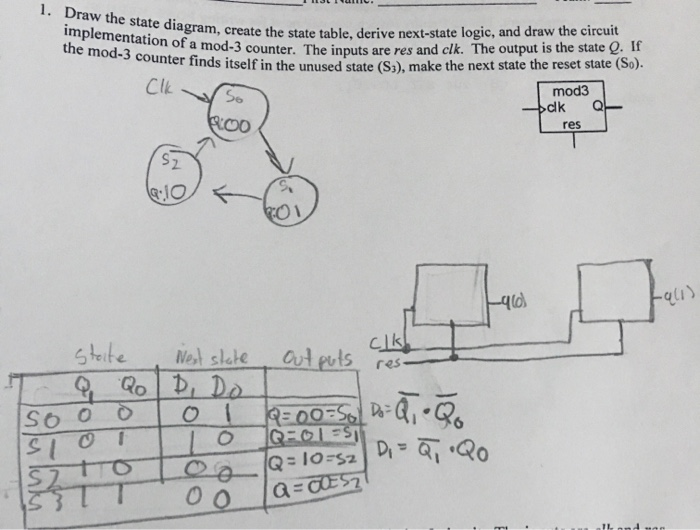 1. Draw the state diagram, create the state table, derive next-state logic, and draw the circuit
implementation of a mod-3 counter. The inputs are res and clk. The output is the state Q. If
the mod-3 counter finds itself in the unused state (S3), make the next state the reset state (S0).
Clk
S0
Q:00
mod3
clk Q
res
S2
Q:10
S1
Q:01
q(0)
q(1)
clk
res
State Next state Outputs
Q1 Q0 D1 D0
S0 0 0 0 1 Q=00=S0 D0=Q̅1·Q̅0
S1 0 1 1 0 Q=01=S1 D1=Q̅1·Q0
S2 1 0 0 0 Q=10=S2
S3 1 1 0 0